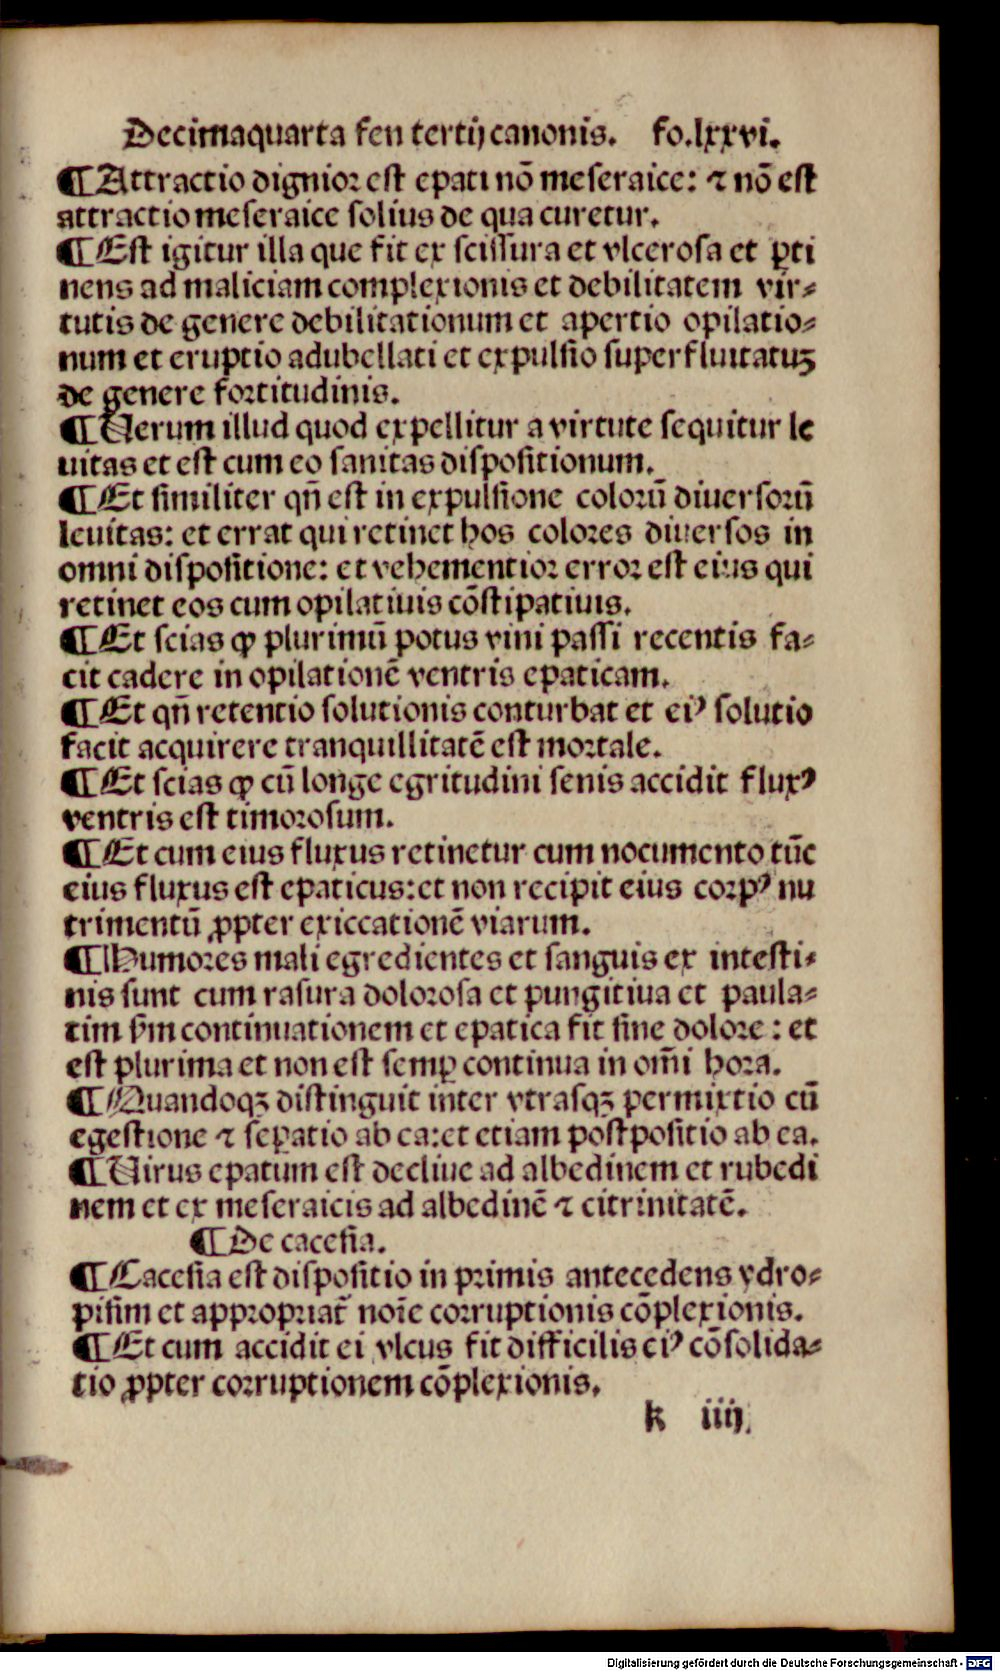 Decimaquarta fen tertij canonis. fo.lxxvi.
¶Attractio dignior est epati nō meseraice: ⁊ nō est
attractio meseraice solius de qua curetur.
¶Est igitur illa que fit ex scissura et vlcerosa et ꝑti
nens ad maliciam complexionis et debilitatem vir⸗
tutis de genere debilitationum et apertio opilatio⸗
num et eruptio adubellati et expulsio superfluitatuꝫ
de genere fortitudinis.
¶Uerum illud quod expellitur a virtute sequitur le
uitas et est cum eo sanitas dispositionum.
¶Et similiter qn̄ est in expulsione colorū diuersorū
leuitas: et errat qui retinet hos colores diuersos in
omni dispositione: et vehementior error est eius qui
retinet eos cum opilatiuis cōstipatiuis.
¶Et scias ꝙ plurimū potus vini passi recentis fa⸗
cit cadere in opilationē ventris epaticam.
¶Et qn̄ retentio solutionis conturbat et eiꝰ solutio
facit acquirere tranquillitatē est mortale.
¶Et scias ꝙ cū longe egritudini senis accidit fluxꝰ
ventris est timorosum.
¶Et cum eius fluxus retinetur cum nocumento tūc
eius fluxus est epaticus: et non recipit eius corpꝰ nu
trimentū ꝓpter exiccationē viarum.
¶Humores mali egredientes et sanguis ex intesti⸗
nis sunt cum rasura dolorosa et pungitiua et paula⸗
tim ẜm continuationem et epatica fit sine dolore: et
est plurima et non est semꝑ continua in om̄i hora.
¶Quandoqꝫ distinguit inter vtrasqꝫ permixtio cū
egestione ⁊ seꝑatio ab ea: et etiam postpositio ab ea.
¶Uirus epatum est decliue ad albedinem et rubedi
nem et ex meseraicis ad albedinē ⁊ citrinitatē.
¶De cacesia.
¶Cacesia est dispositio in primis antecedens ydro⸗
pisim et appropriat̄ noīe corruptionis cōplexionis.
¶Et cum accidit ei vlcus fit difficilis eiꝰ cōsolida⸗
tio ꝓpter corruptionem cōplexionis.
k iiij.
Digitalisierung gefördert durch die Deutsche Forschungsgemeinschaft - DFG